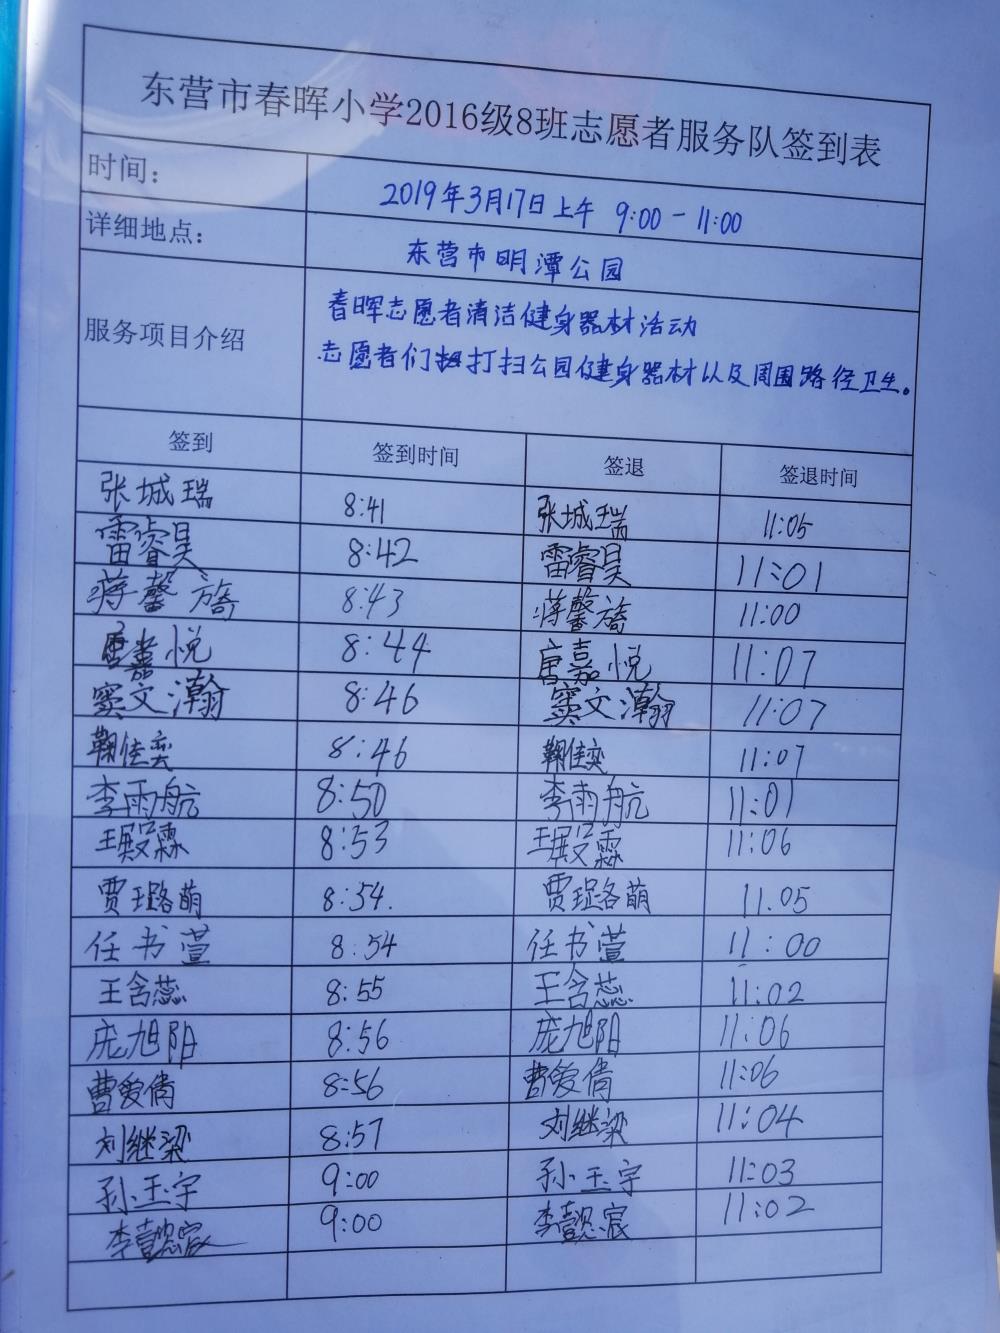 东营市春晖小学2016级8班志愿者服务队签到表
时间： 2019年3月17日上午 9:00-11:00
详细地点： 东营市明潭公园
服务项目介绍
春晖志愿者清洁健身器材活动
志愿者们打扫公园健身器材以及周围路径卫生。
签到 签到时间 签退 签退时间
张城瑞 8:41 张城瑞 11:05
雷睿昊 8:42 雷睿昊 11:01
蒋馨旖 8:43 蒋馨旖 11:00
唐嘉悦 8:44 唐嘉悦 11:07
窦文瀚 8:46 窦文瀚 11:07
鞠佳奕 8:46 鞠佳奕 11:07
李雨航 8:50 李雨航 11:01
王殿霖 8:53 王殿霖 11:06
贾璐萌 8:54. 贾璐萌 11.05
任书萱 8:54 任书萱 11:00
王含蕊 8:55 王含蕊 11:02
庞旭阳 8:56 庞旭阳 11:06
曹爱倩 8:56 曹爱倩 11:06
刘继梁 8:57 刘继梁 11:04
孙玉宇 9:00 孙玉宇 11:03
李懿宸 9:00 李懿宸 11:02